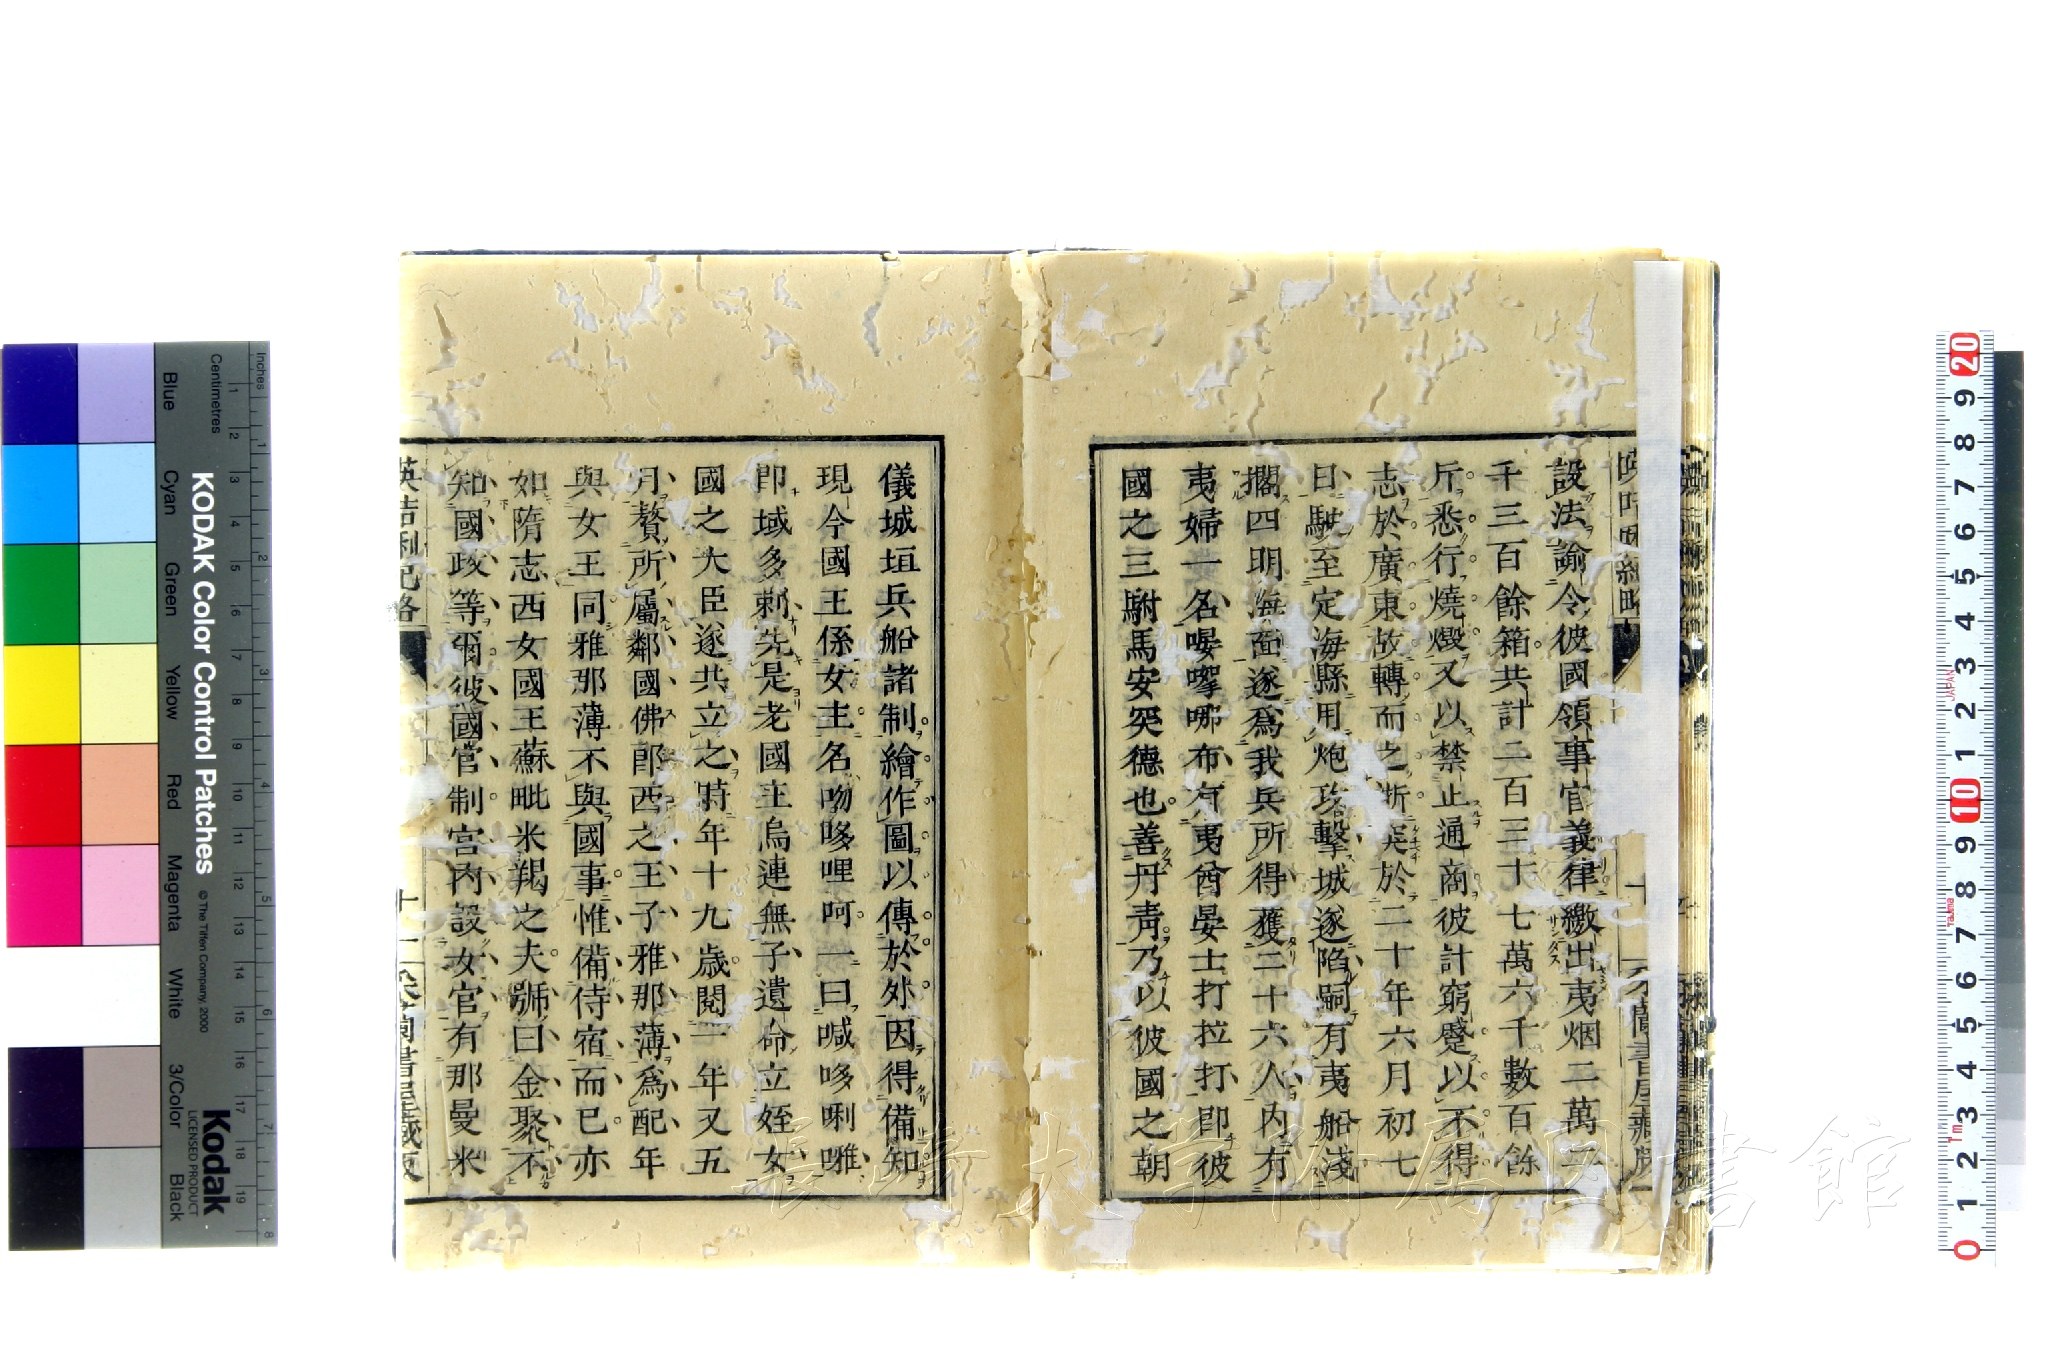 設法諭令彼國領事官義律繳出夷烟二萬二
千三百餘箱共計二百三十七萬六千數百餘
斤悉行燒燬又以禁止通商彼計窮蹙以不得
志於廣東故轉而之浙突於二十年六月初七
日駛至定海縣用炮攻擊城遂陷嗣有夷船淺
擱四明海面遂爲我兵所得獲二十六人內有
夷婦一名晏嗱哪布有夷酋晏士打拉打卽彼
國之三駙馬安突德也善丹靑乃以彼國之朝
儀城垣兵船諸制繪作圖以傳於外因得備知
現今國王係女主名吻哆哩呵一曰喊哆唎嗺
卽域多剌先是老國主烏連無子遺命立姪女
國之大臣遂共立之時年十九歲閱一年又五
月贅所屬鄰國佛郎西之王子雅那薄爲配年
與女王同雅那薄不與國事惟備侍宿而已亦
如隋志西女國王蘇毗米羯之夫號曰金聚不
知國政等爾彼國官制宮內設女官有那曼米
英吉利紀略
長崎大学附属図書館
KODAK Color Control Patches
© The Tiffen Company, 2000
Kodak
LICENSED PRODUCT
Inches
Centimetres
Blue
Cyan
Green
Yellow
Red
Magenta
White
3/Color
Black